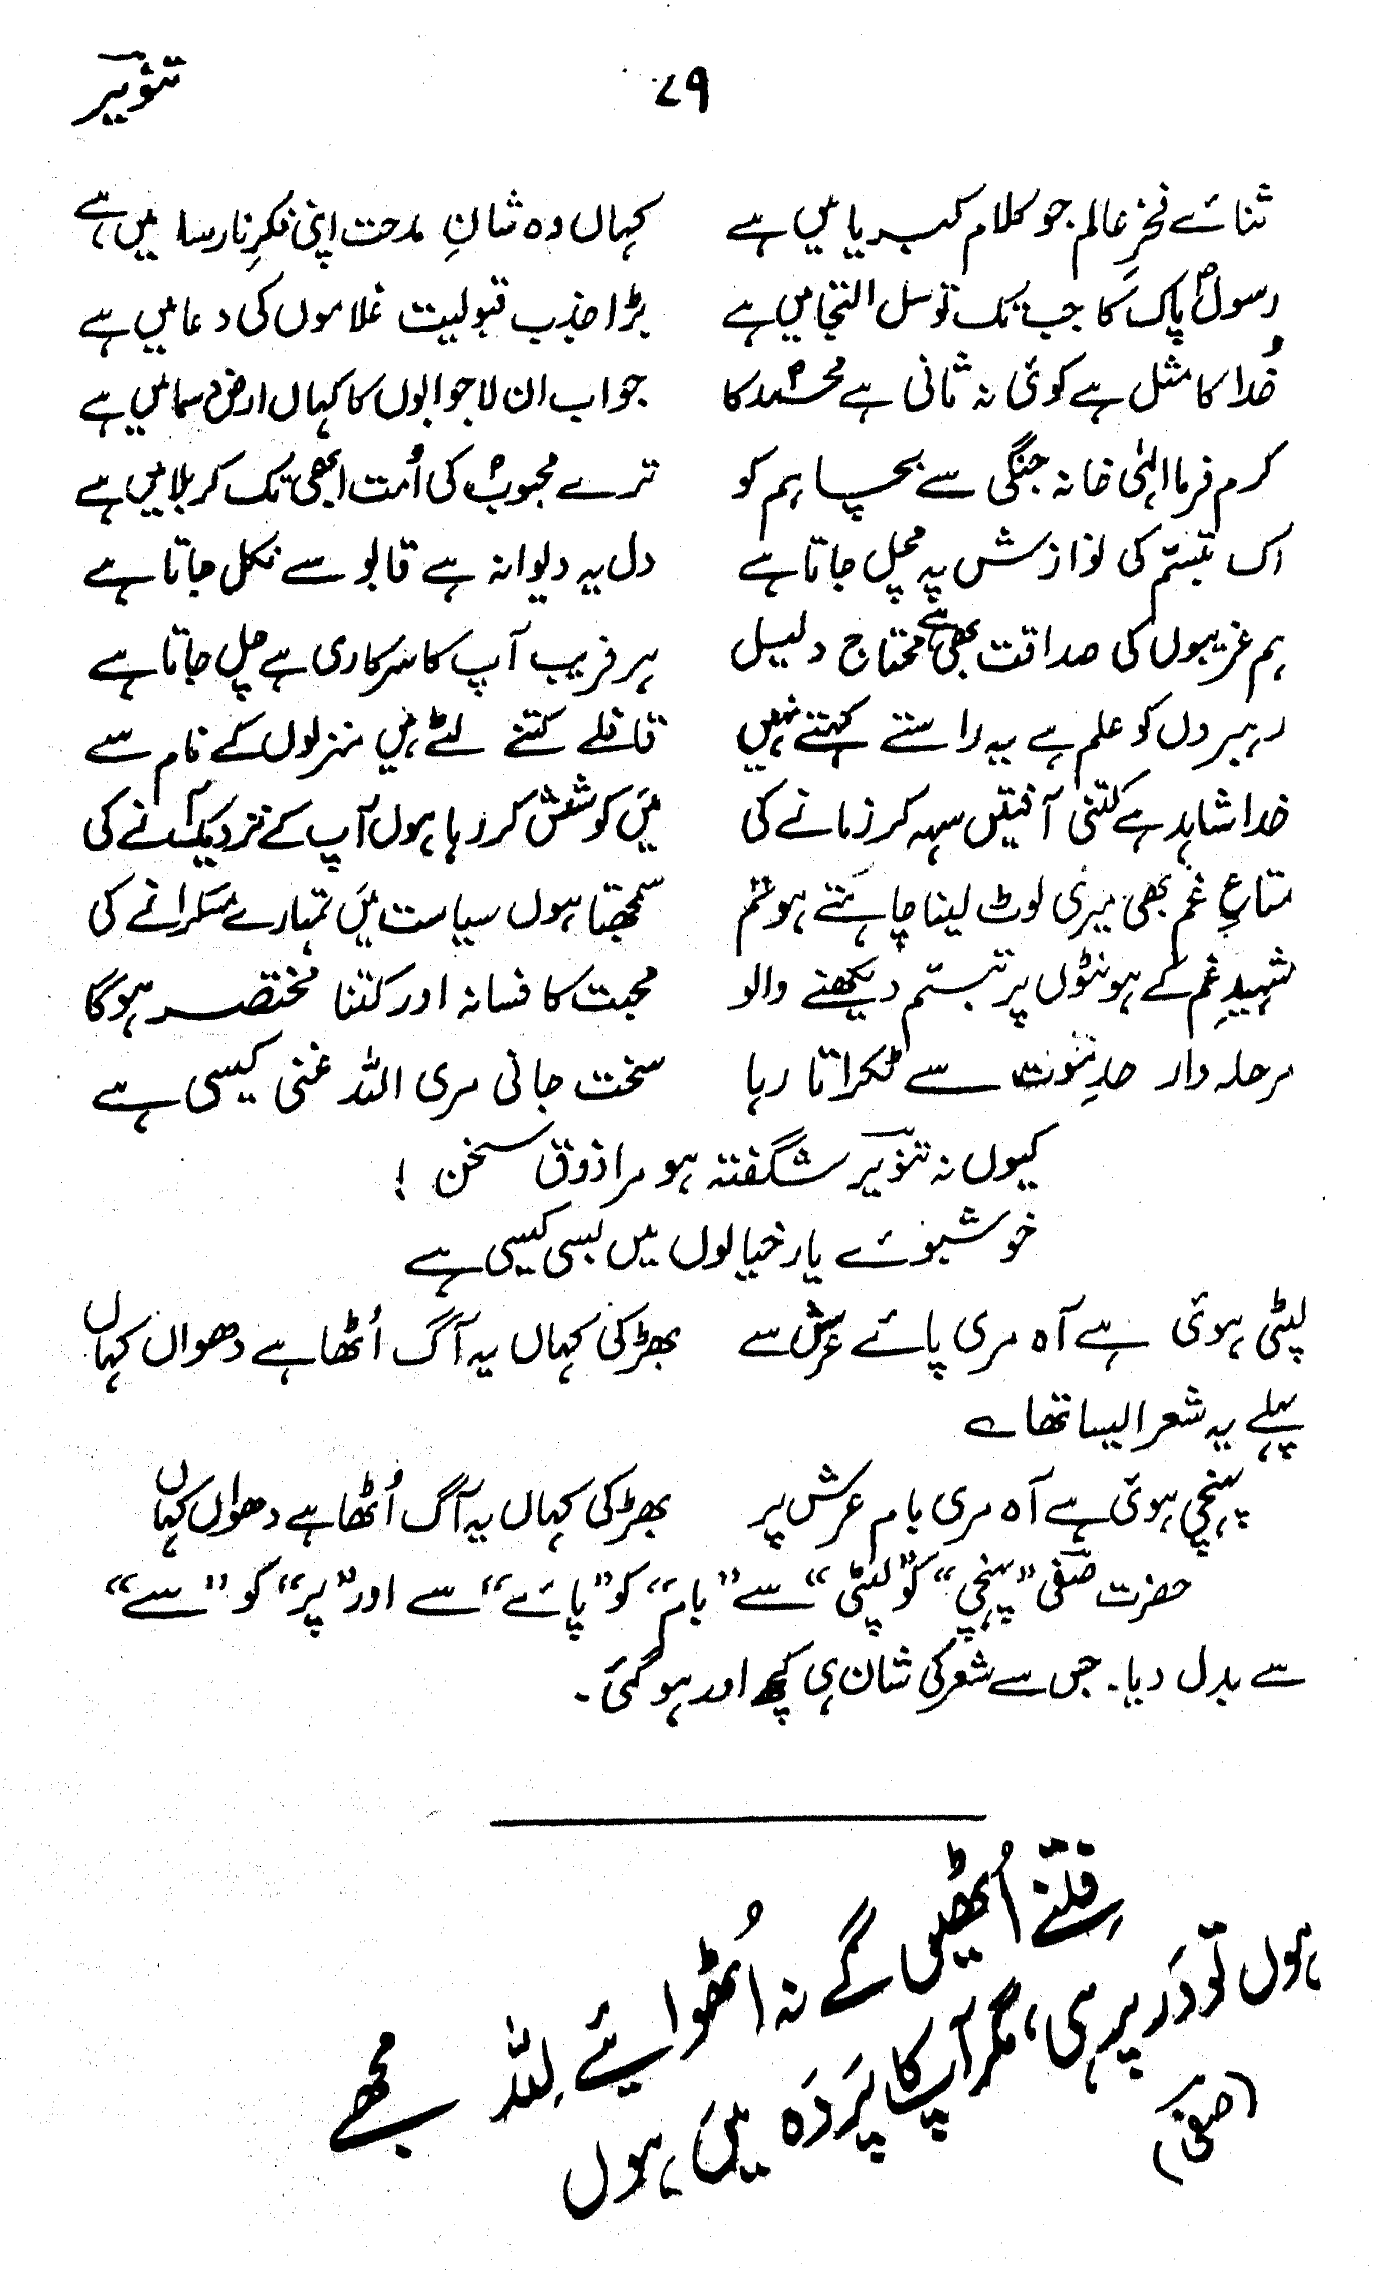 تنویر ۷۹
ثنائے فخرِ عالم جو کلام کبریا میں ہے کہاں وہ شانِ مدحت اپنی فکرِ نارسا میں ہے
رسولؐ پاک کا جب تک توسل التجا میں ہے بڑا جذب قبولیت غلاموں کی دعا میں ہے
خُدا کا مثل ہے کوئی نہ ثانی ہے محمدؐ کا جواب ان لاجوابوں کا کہاں ارض و سما میں ہے
کرم فرما الٰہی خانہ جنگی سے بچا ہم کو ترے محبوبؐ کی اُمت ابھی تک کربلا میں ہے
اک تبسّم کی نوازش پہ مچل جاتا ہے دل یہ دیوانہ ہے قابو سے نکل جاتا ہے
ہم غریبوں کی صداقت بھی ہے محتاج دلیل ہر فریب آپ کا سرکاری ہے چل جاتا ہے
رہبروں کو علم ہے یہ راستے کہتے نہیں قافلے کتنے لٹے ہیں منزلوں کے نام سے
خدا شاہد ہے کتنی آفتیں سہہ کر زمانے کی میں کوشش کر رہا ہوں آپ کے نزدیک آنے کی
متاعِ غم بھی میری لوٹ لینا چاہتے ہو تم سمجھتا ہوں سیاست میں تمہارے مسکرانے کی
شہیدِ غم کے ہونٹوں پر تبسّم دیکھنے والو محبت کا فسانہ اور کتنا مختصر ہوگا
مرحلہ وار حدِ موت سے ٹکراتا رہا سخت جانی مری اللہ غنی کیسی ہے
کیوں نہ تنویرؔ شگفتہ ہو مرا ذوق سخن !
خوشبوئے یار خیالوں میں بسی کیسی ہے
لپٹی ہوئی ہے آہ مری پائے عرش سے بھڑکی کہاں یہ آگ اُٹھا ہے دھواں کہاں
پہلے یہ شعر ایسا تھا ے
پہنچی ہوئی ہے آہ مری بام عرش پر بھڑکی کہاں یہ آگ اُٹھا ہے دھواں کہاں
حضرت صفیؔ "پہنچی" کو "لپٹی" سے "بام" کو "پائے" سے اور "پر" کو "سے"
سے بدل دیا۔ جس سے شعر کی شان ہی کچھ اور ہو گئی۔
فِتنے اُٹھیں گے نہ اُٹھوایئے لِلّٰہ مجھے
ہوں تو دَر پر ہی، مگر آپ کا پَردَہ میں ہوں
(صفیؔ)